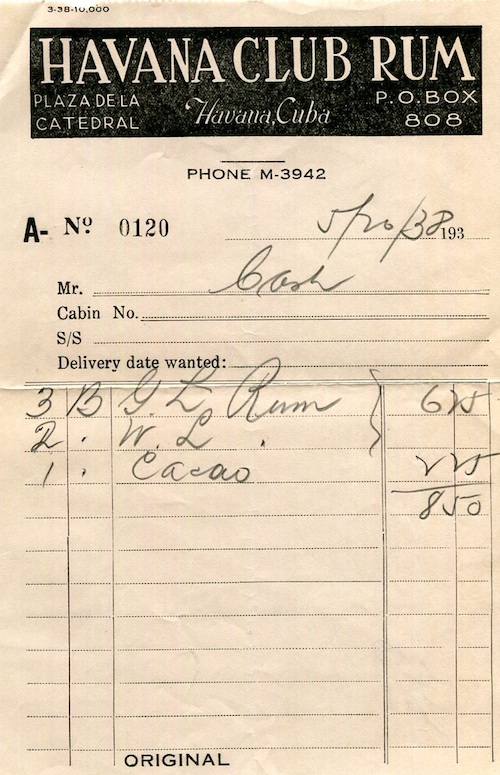 3-38-10,000
HAVANA CLUB RUM
PLAZA DE LA CATEDRAL
Havana, Cuba
P.O. BOX 808
PHONE M-3942
A- Nº 0120
5/20/38 193
Mr. Cash
Cabin No.
S/S
Delivery date wanted:
3 B G. L Rum } 625
2 . W. L .
1 . Cacao 225
850
ORIGINAL